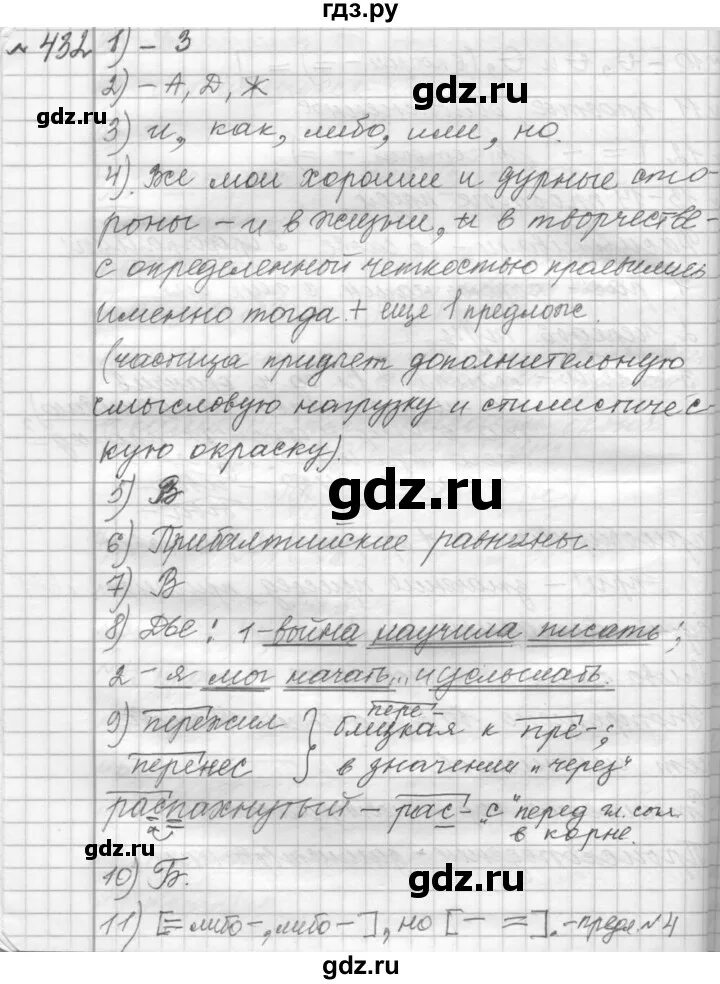 гдз.ру
№ 432 1) - 3
gdz.ru
2) - А, Д, Ж
gdz.ru
3) и, как, либо, или, но.
4). Все мои хорошие и дурные сто-
роны - и в жизни, и в творчестве -
с определенной четкостью проявились
именно тогда. + еще 1 предлож.
(частица придает дополнительную
смысловую нагрузку и стилистичес-
кую окраску).
5) В
gdz.ru
6) Прибалтийские равнины.
7) В
8) Две: 1 - война научила писать;
2 - я мог начать... и услышать.
9) пережил } пере- близкая к пре-;
перенес } в значении "через"
распахнутый - рас- "с" перед гл. согл.
в корне.
gdz.ru
10) Б.
gdz.ru
11) [= либо -, либо -], но [- =]. - предл №4
gdz.ru